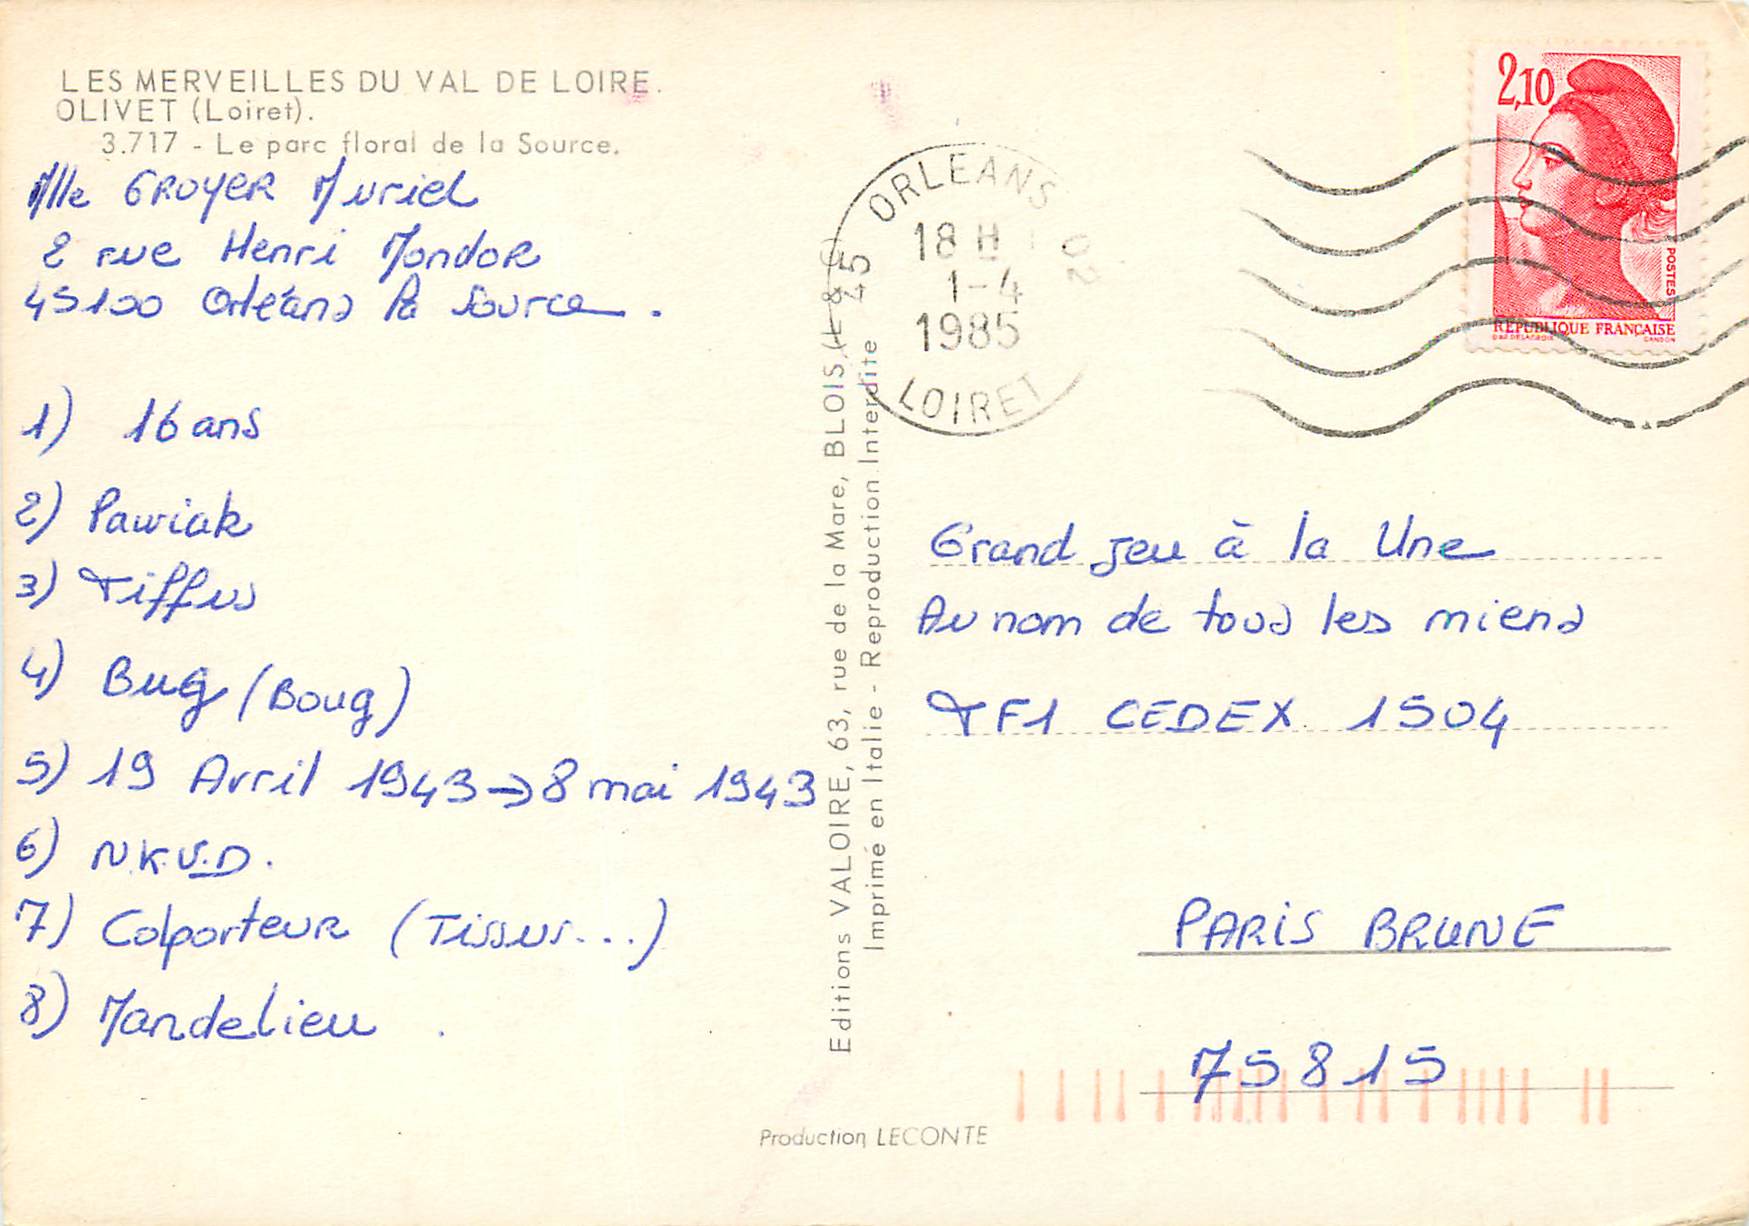 LES MERVEILLES DU VAL DE LOIRE.
OLIVET (Loiret).
3.717 - Le parc floral de la Source.
Mlle GROYER Muriel
2 rue Henri Mondor
45100 Orléans la Source.
1) 16 ans
2) Pawiak
3) Tiffus
4) Bug (Boug)
5) 19 Avril 1943 → 8 mai 1943
6) N.K.V.D.
7) Colporteur (Tissus...)
8) Mandelieu.
Editions VALOIRE, 63, rue de la Mare, BLOIS (L & C)
Imprimé en Italie - Reproduction Interdite
Production LECONTE
45 ORLEANS 02
18 H
1-4
1985
LOIRET
2,10
POSTES
REPUBLIQUE FRANÇAISE
D'AP. DELACROIX GANDON
Grand jeu à la Une
Au nom de tous les miens
TF1 CEDEX 1504
PARIS BRUNE
75815